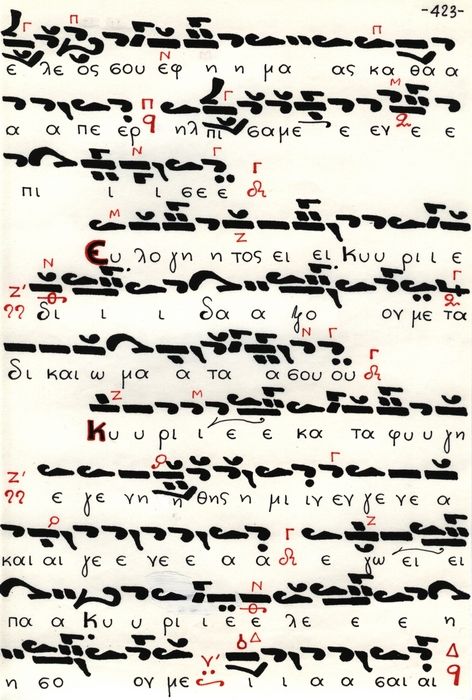 -423-
ε λε ος σου εφ η η μα ας κα θα α
α α πε ερ ηλ πι σα με ε εν ε ε
πι ι ι σε ε
Ευ λο γη η τος ει ει Κυ υ ρι ι ε
δι ι ι δα α ξο ον με τα
δι και ω μα α τα α σου ου
Κυ υ ρι ι ε ε κα τα φυ υ γη
ε γε νη η θης η μι ιν εν γε νε α
και αι γε ε νε ε α α ε γω ει ει
πα α Κυ υ ρι ι ε ε λε ε ε η
η σο ον με ι ι α α σαι αι